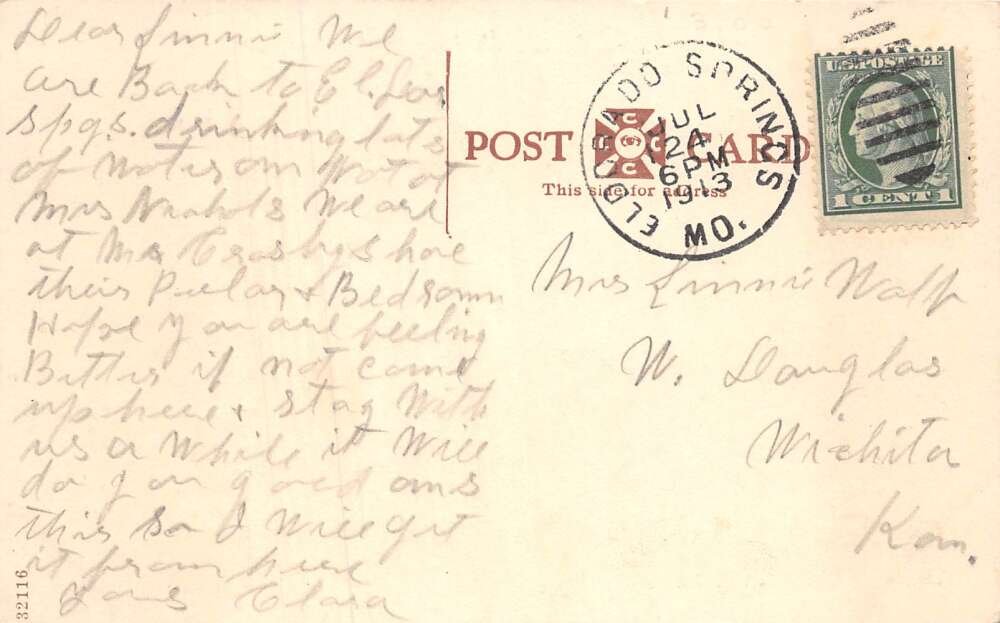 Dear Linnie We
are Back to El. Dor
Spgs. drinking lots
of Water am Not at
Mrs Nichols We are
at Mrs Crosbys have
their Parlor & Bedroom
Hope you are feeling
Better if not come
up here & stay With
us a While it Will
do you good ans
this so I Will get
it from here
Yours Clara
32116
POST CARD
This side for address
ELDORADO SPRINGS
JUL
24
6 PM
1913
MO.
U.S. POSTAGE
1 CENT 1
Mrs Linnie
W. Douglas
Wichita
Kan.